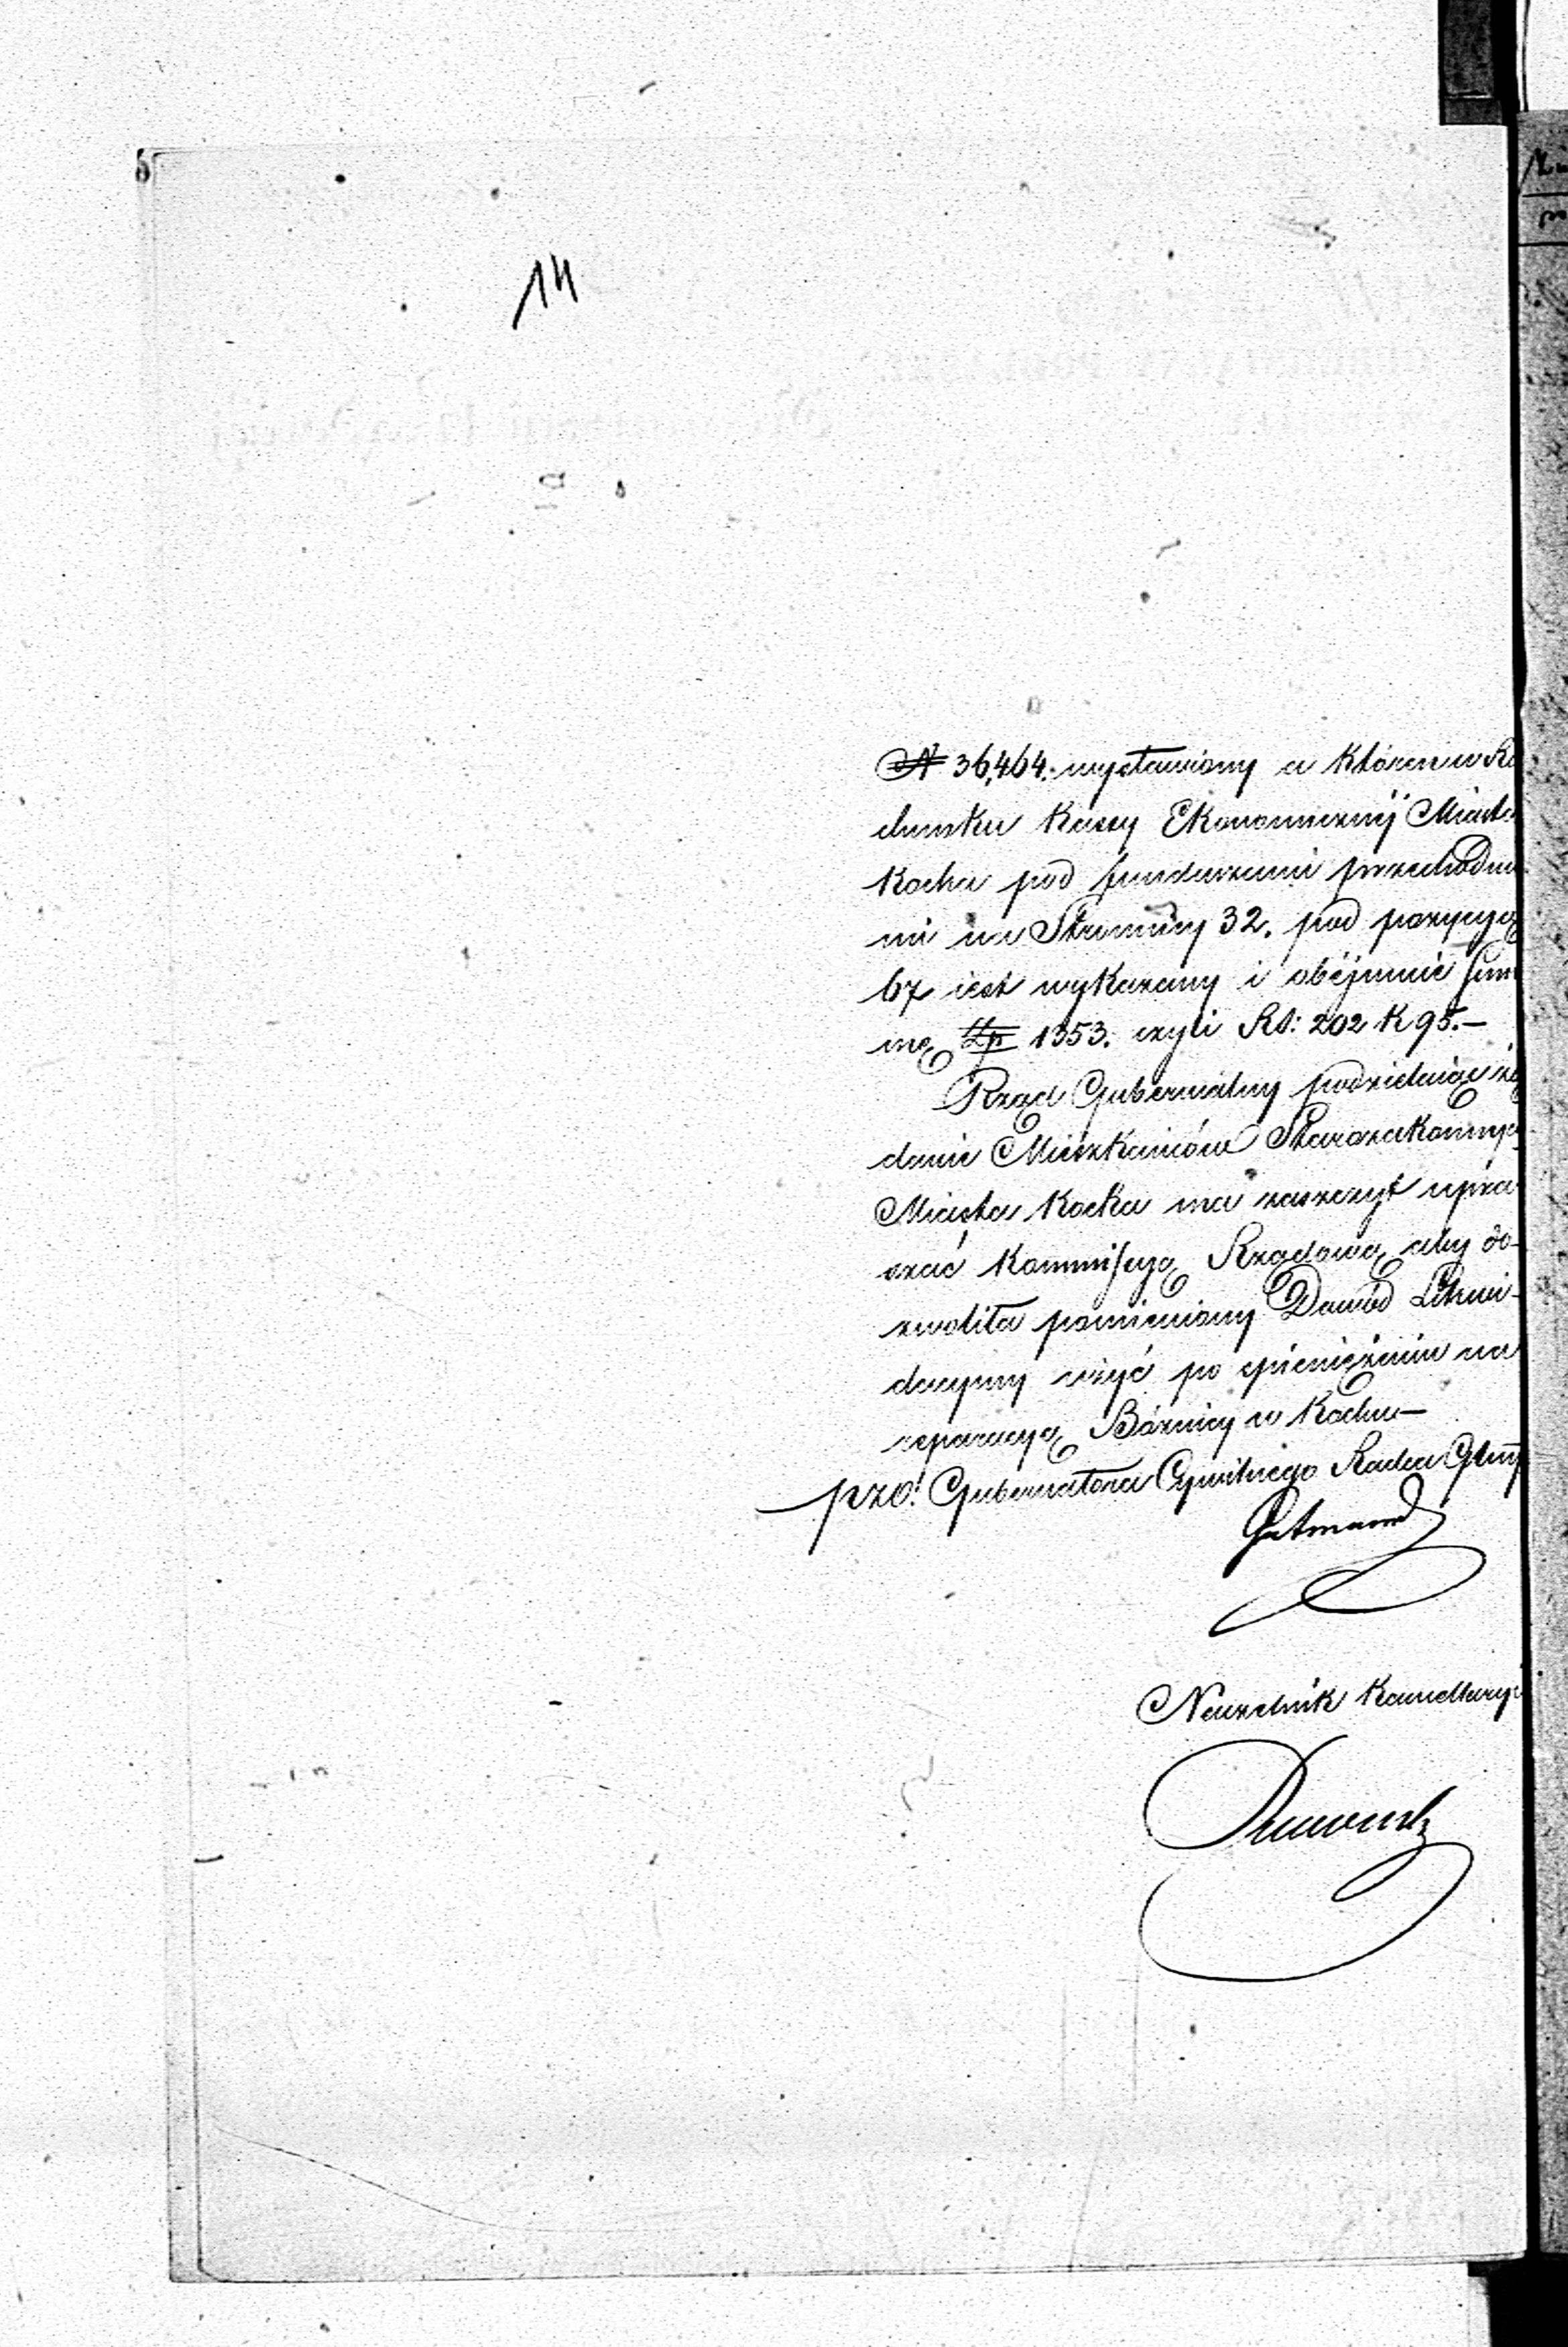 14
N 36,464. wystawiony a któren w Ra
chunku Kassy Ekonomicznéj Miasta
Kocka pod funduszami przechodni
mi na Stronnicy 32. pod pozycyą
67 iest wykazany i obéjmuie Sum
mę Złp 1353. czyli RS: 202 K 95.—
Rząd Gubernialny podzielaiąc żą
danie Mieszkańców Starozakonnych
Miasta Kocka ma zaszczyt upra
szać Kommissyą Rządową aby do-
zwoliła pomieniony Dowód Likwi-
dacyiny użyć po spieniężeniu na
reparacyą Bóżnicy w Kocku—
pzo: Gubernatora Cywilnego Radca Gbny
Gutmand
Naczelnik Kancellaryi